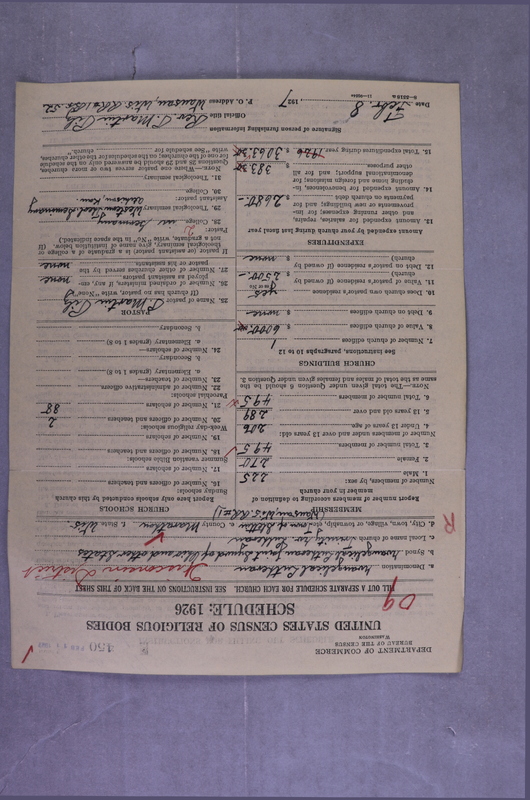 DEPARTMENT OF COMMERCE
BUREAU OF THE CENSUS
WASHINGTON
UNITED STATES CENSUS OF RELIGIOUS BODIES
SCHEDULE: 1926
FILL OUT A SEPARATE SCHEDULE FOR EACH CHURCH. SEE INSTRUCTIONS ON THE BACK OF THIS SHEET
a. Denomination Evangelical Lutheran
b. Synod Evangelical Lutheran Joint Synod of Ohio and other States
c. Local name of church Trinity Ev. Lutheran
d. City, town, village, or township, place Town of Stettin e. County Marathon f. State Wis.
(Wausau, Wis. R.R. #1)
MEMBERSHIP
Report of members according to definition of
member in your church
Number of members, by sex:
1. Male 225
2. Female 270
3. Total number of members 495
Number of members under and over 13 years old:
4. Under 13 years of age 206
5. 13 years old and over 289
6. Total number of members 495
NOTE.—The total given under Question 6 should be the
same as the total of males and females given under Question 3.
CHURCH BUILDINGS
See instructions, paragraphs 10 to 12
7. Number of church edifices 1
8. Value of church edifices $ 6000.00
9. Debt on church edifices $ none
10. Does church own pastor's residence yes
(Yes or No)
11. Value of pastor's residence (if owned by
church) $ 2500.
12. Debt on pastor's residence (if owned by
church) $ none
EXPENDITURES
Amount expended by your church during last fiscal year
13. Amount expended for salaries, repairs,
and other running expenses; for im-
provements or new buildings; and for
payments on church debt $ 2680.
14. Amount expended for benevolence, in-
cluding home and foreign missions; for
denominational support; and for all
other purposes $ 383.
15. Total expenditures during year 1926 $ 3063.
CHURCH SCHOOLS
Report here only schools conducted by this church
Sunday schools:
16. Number of officers and teachers
17. Number of scholars
Summer vacation Bible schools:
18. Number of officers and teachers
19. Number of scholars
Week-day religious schools:
20. Number of officers and teachers 2
21. Number of scholars 88
Parochial schools:
22. Number of administrative officers
23. Number of teachers—
a. Elementary (grades 1 to 8)
b. Secondary
24. Number of scholars—
a. Elementary (grades 1 to 8)
b. Secondary
PASTOR
25. Name of pastor
(If church has no pastor, write "None")
26. Number of ordained ministers, if any, em-
ployed as assistant pastors none
27. Number of other churches served by the
pastor or his assistants none
If pastor (or assistant pastor) is a graduate of a college or
theological seminary, give name of institution below. (If
not a graduate, write "No" in the space indicated.)
Pastor:
28. College in Germany
29. Theological seminary
Assistant pastor:
30. College
31. Theological seminary
Signature of person furnishing information Rev. J. Martin
Official title
Date Febr 8, 1927 P. O. Address Wausau, Wis.